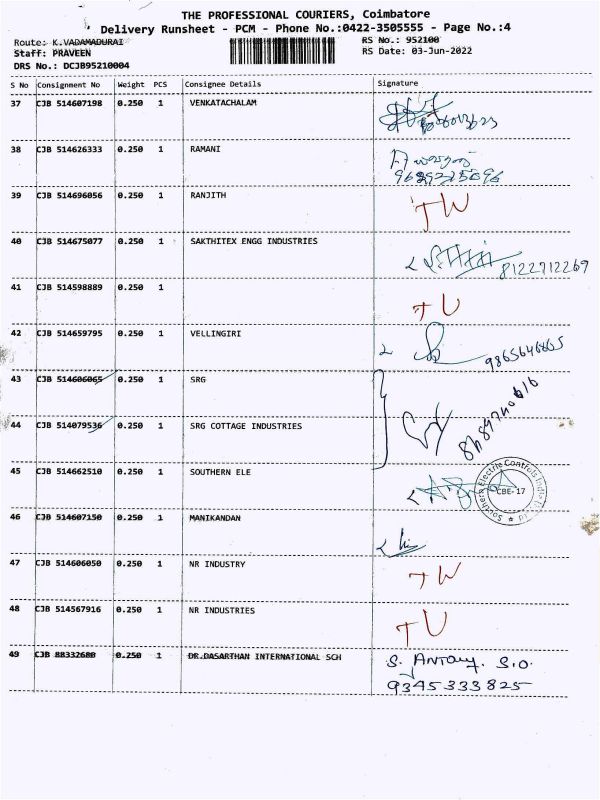 THE PROFESSIONAL COURIERS, Coimbatore
Delivery Runsheet - PCM - Phone No.:0422-3505555 - Page No.:4
Route: K.VADAMADURAI RS No.: 952100
Staff: PRAVEEN RS Date: 03-Jun-2022
DRS No.: DCJB95210004
S No Consignment No Weight PCS Consignee Details Signature
37 CJB 514607198 0.250 1 VENKATACHALAM
38 CJB 514626333 0.250 1 RAMANI
39 CJB 514696056 0.250 1 RANJITH
40 CJB 514675077 0.250 1 SAKTHITEX ENGG INDUSTRIES 8122712269
41 CJB 514598889 0.250 1
42 CJB 514659795 0.250 1 VELLINGIRI 9865646865
43 CJB 514606065 0.250 1 SRG
44 CJB 514079536 0.250 1 SRG COTTAGE INDUSTRIES
45 CJB 514662510 0.250 1 SOUTHERN ELE CBE-17
46 CJB 514607150 0.250 1 MANIKANDAN
47 CJB 514606050 0.250 1 NR INDUSTRY
48 CJB 514567916 0.250 1 NR INDUSTRIES
49 CJB 88332680 0.250 1 DR.DASARTHAN INTERNATIONAL SCH S. ANTONY. S.O.
9345333825